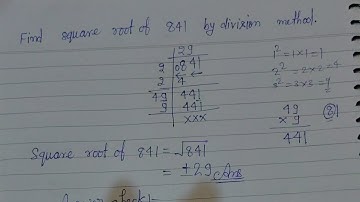 Find square root of 841 by division method.
29
2 | 0841
2 | 4
49 | 441
9 | 441
xxx
1² = 1×1 = 1
2² = 2×2 = 4
3² = 3×3 = 9
49
× 9
441
Square root of 841 = √841
= ±29 Ans